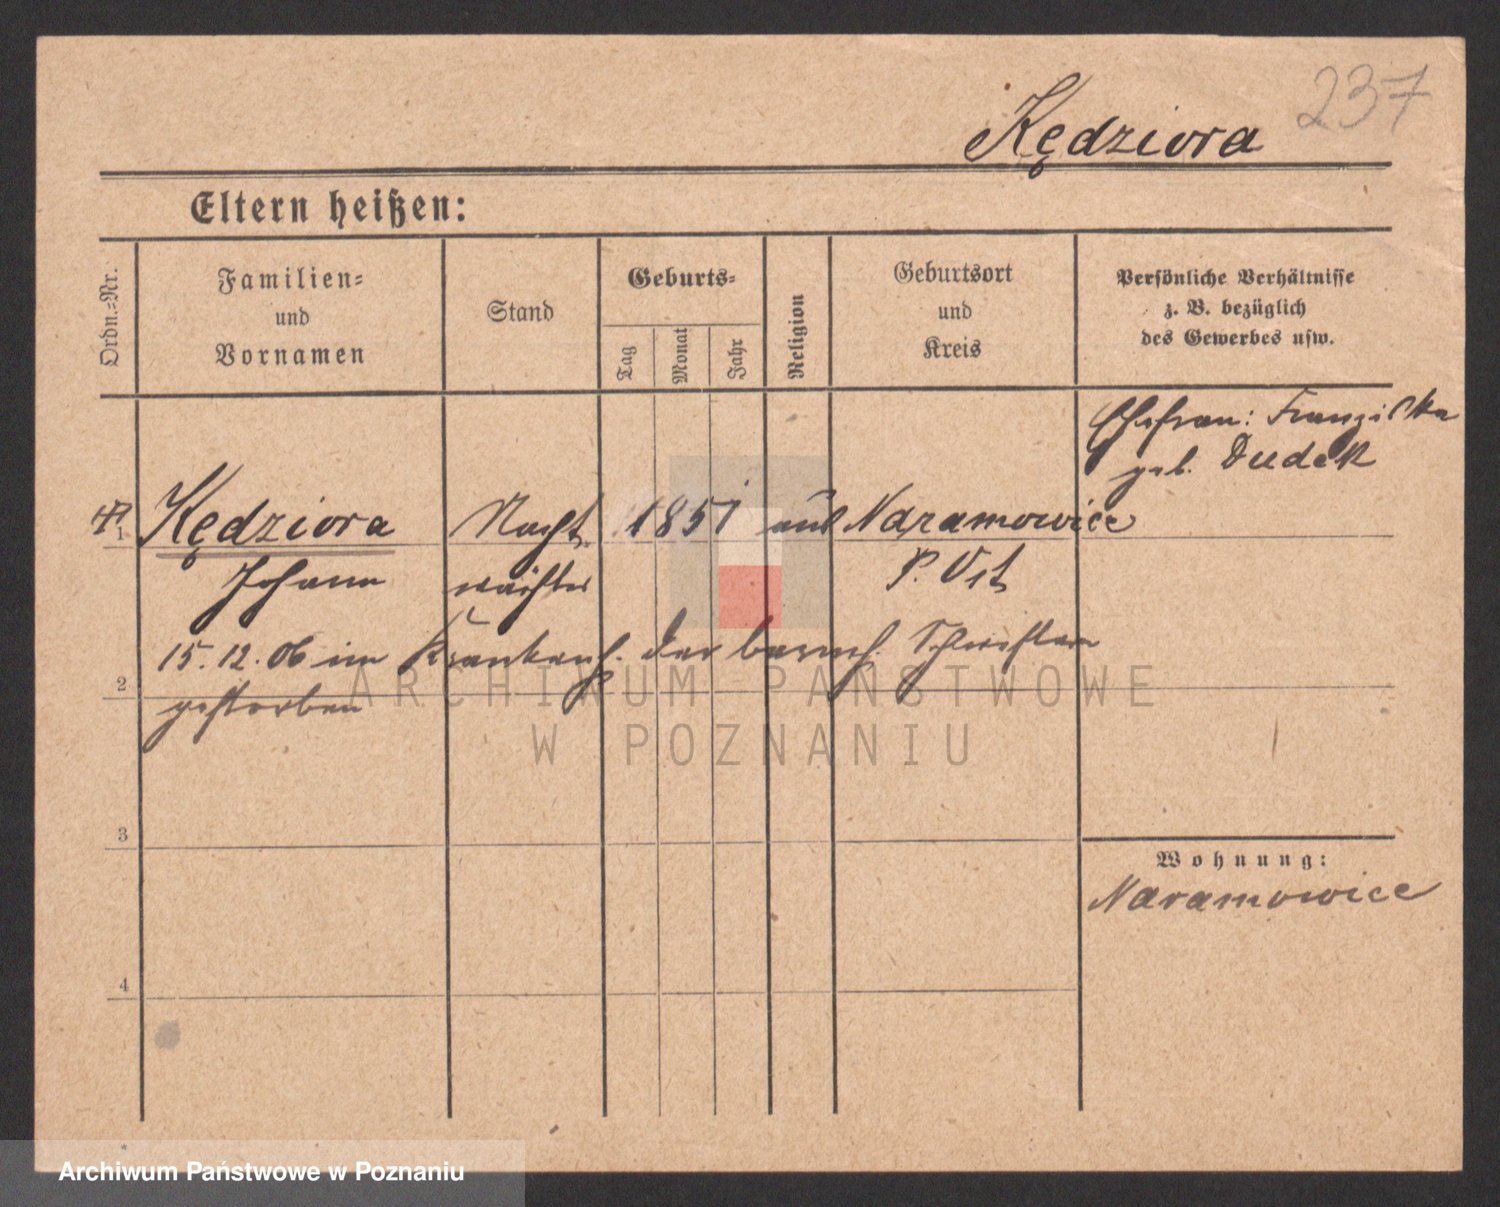 237
Kędziora
Eltern heißen:
Ordn.-Nr.
Familien-
und
Vornamen
Stand
Geburts-
Tag
Monat
Jahr
Religion
Geburtsort
und
Kreis
Persönliche Verhältnisse
z. B. bezüglich
des Gewerbes usw.
Ehefrau: Franziska
geb. Dudek
1 Kędziora Nacht 1851 aus Naramowice
Johann wächter P. Ost
15.12.06 im Krankenh. der barmh. Schwestern
2
gestorben
ARCHIWUM PAŃSTWOWE
W POZNANIU
3
Wohnung:
Naramowice
4
Archiwum Państwowe w Poznaniu